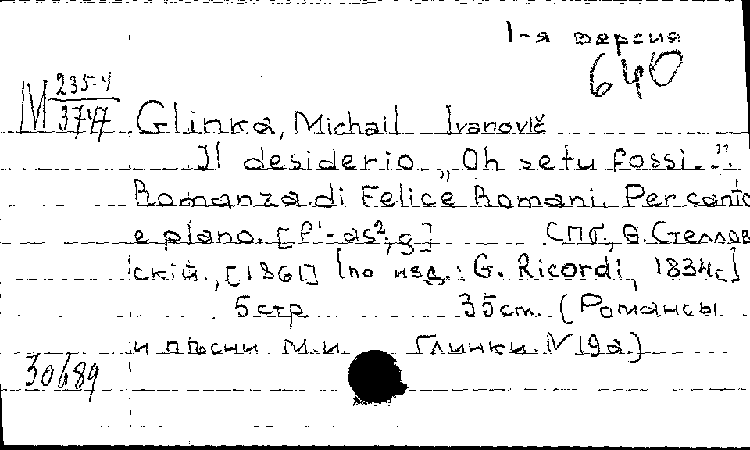 1-я версия
640
М 235-4
3747
Glinka, Michail Ivanovič
Il desiderio „Oh se tu fossi..."
Romanza di Felice Romani. Per canto
e piano. [f¹-as²; g] СПб., Ѳ. Стеллов
скій., [1861] [по изд.: G. Ricordi, 1834г.]
5 стр 35 cm. (Романсы
и пѣсни М.И. Глинки. N 19а.)
30689